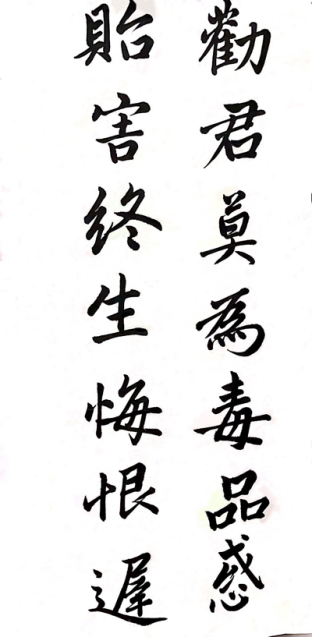 勸君莫為毒品惑
貽害終生悔恨遲